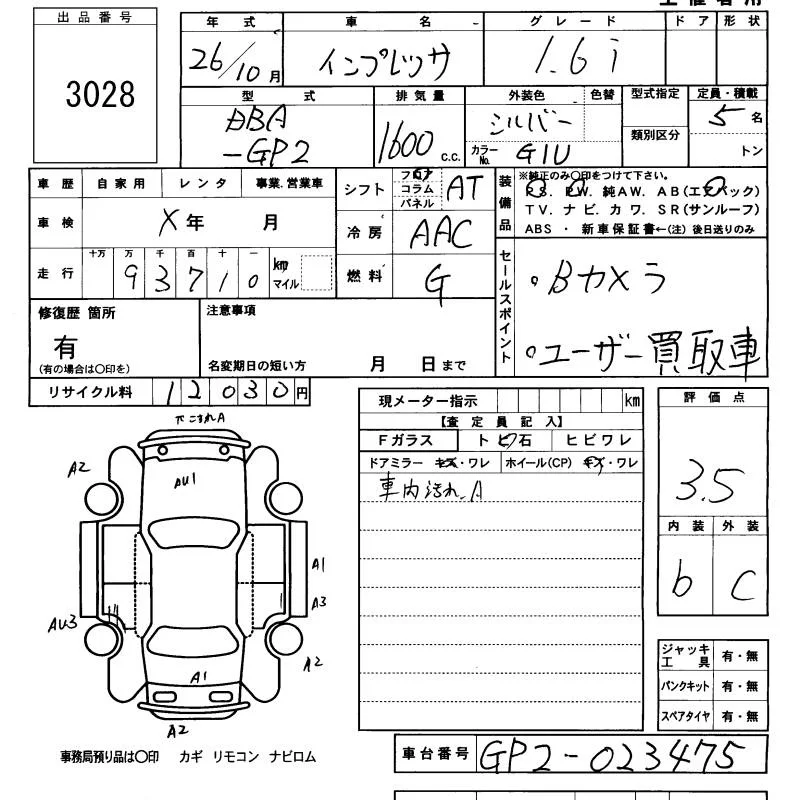 出品番号
3028
年式 車名 グレード ドア 形状
26/10月 インプレッサ 1.6i
型式 排気量 外装色 色替 型式指定 定員・積載
DBA
-GP2
1600 c.c.
シルバー
カラーNo. G1U
類別区分
5名
トン
車歴 自家用 レンタ 事業.営業車
車検 X年 月
走行 十万 万 千 百 十 一
93710 km マイル
シフト フロア コラム パネル AT
冷房 AAC
燃料 G
装備品
※純正のみ○印をつけて下さい。
P.S. P.W. 純AW. AB(エアバック)
TV. ナビ. カワ. SR(サンルーフ)
ABS ・ 新車保証書←(注) 後日送りのみ
セールスポイント
・Bカメラ
・ユーザー買取車
修復歴 箇所
有
(有の場合は○印を)
注意事項
名変期日の短い方 月 日まで
リサイクル料 12030円
現メーター指示 km
【査定員記入】
Fガラス トビ石 ヒビワレ
ドアミラー キズ・ワレ ホイール(CP) キズ・ワレ
車内汚れ.A
評価点
3.5
内装 外装
b C
下こすれA
A2
AU1
A1
A3
AU3
A2
A1
A2
ジャッキ工具 有・無
パンクキット 有・無
スペアタイヤ 有・無
事務局預り品は○印 カギ リモコン ナビロム
車台番号 GP2-023475